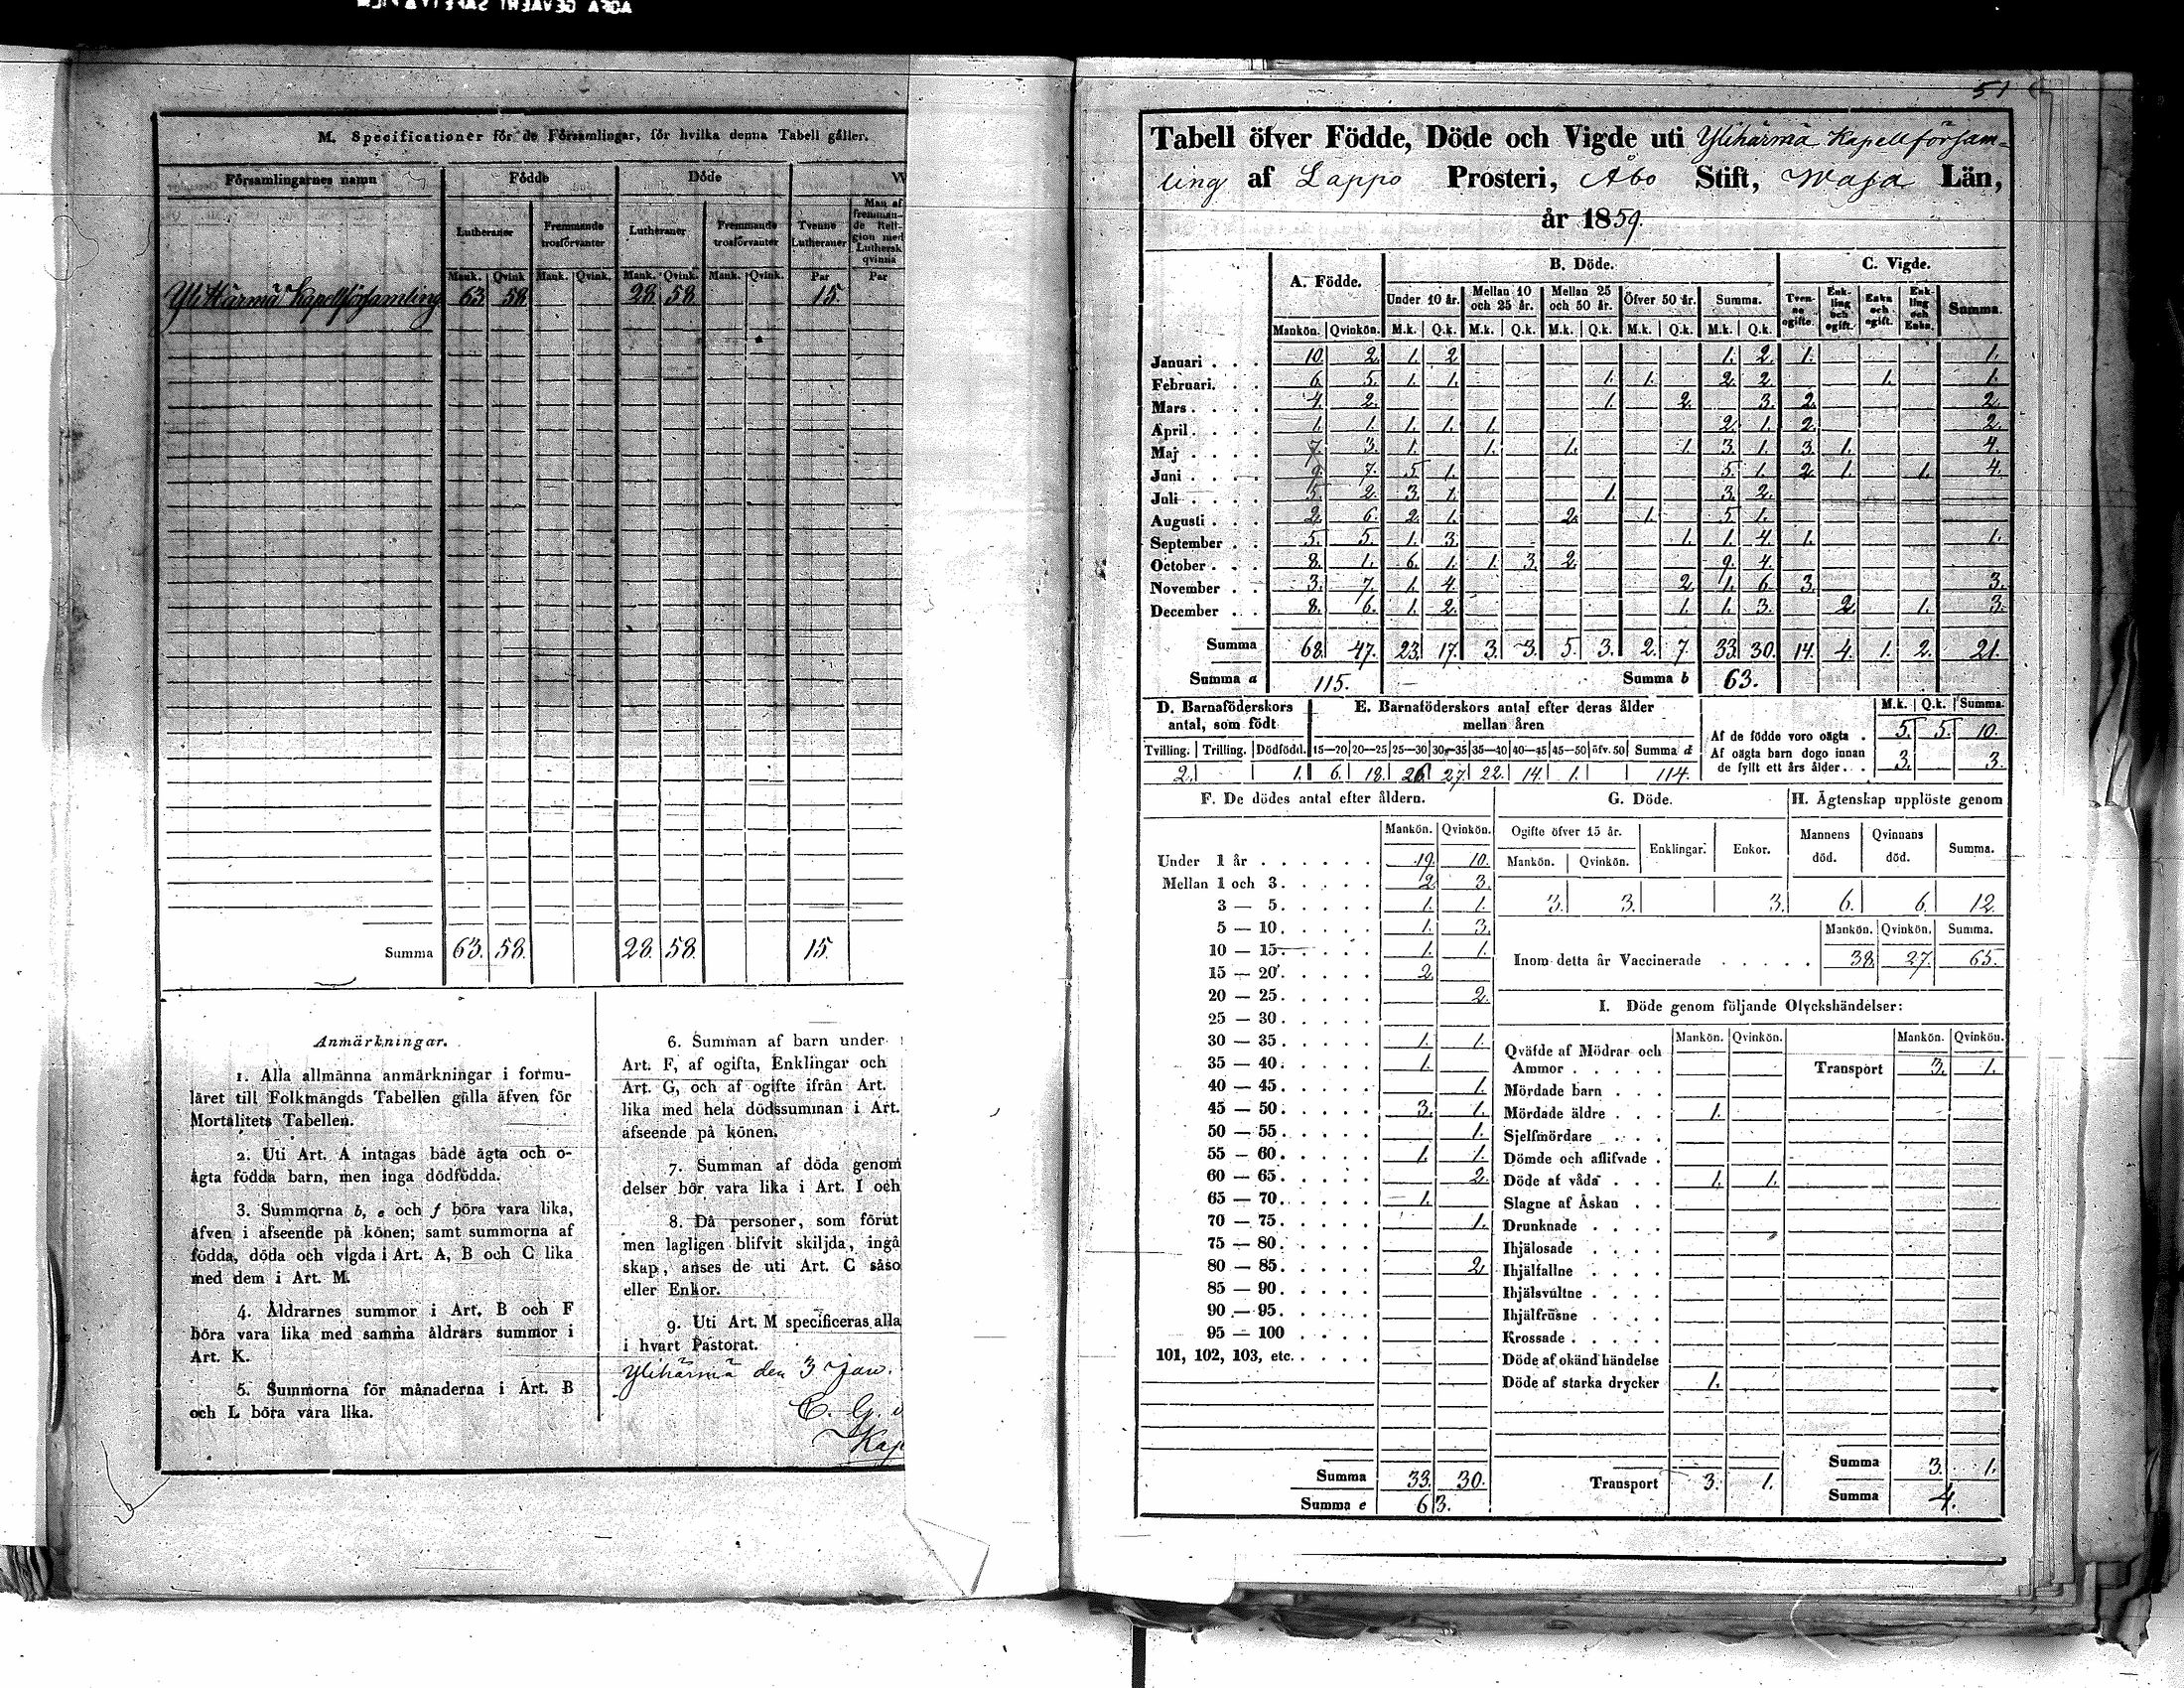 M. Specificationer för de Församlingar, för hvilka denna Tabell gäller.
Församlingarnes namn Födde Döde
Lutheraner Fremmande trosförvanter Lutheraner Fremmande trosförvanter Tvenne Lutheraner Man af fremmande Religion med Luthersk qvinna
Mank. Qvink. Mank. Qvink. Mank. Qvink. Mank. Qvink. Par Par
Yli Härmä Kapellförsamling 63 58 28 58 15.
Summa 63. 58. 28. 58. 15.
Anmärkningar.
1. Alla allmänna anmärkningar i formu-
läret till Folkmängds Tabellen gälla äfven för
Mortalitets Tabellen.
2. Uti Art. A intagas både ägta och o-
ägta födda barn, men inga dödfödda.
3. Summorna b, e och f böra vara lika,
äfven i afseende på könen; samt summorna af
födda, döda och vigda i Art. A, B och C lika
med dem i Art. M.
4. Åldrarnes summor i Art. B och F
böra vara lika med samma åldrars summor i
Art. K.
5. Summorna för månaderna i Art. B
och L böra vara lika.
6. Summan af barn under
Art. F, af ogifta, Enklingar och
Art. G, och af ogifte ifrån Art.
lika med hela dödssumman i Art.
afseende på könen.
7. Summan af döda genom
delser bör vara lika i Art. I och
8. Då personer, som förut
men lagligen blifvit skiljda, ingå
skap, anses de uti Art. C såso
eller Enkor.
9. Uti Art. M specificeras alla
i hvart Pastorat.
Ylihärmä den 3 Jan.
C. G.
Kap
51
Tabell öfver Födde, Döde och Vigde uti Ylihärmä Kapellförsam-
ling af Lappo Prosteri, Åbo Stift, Wasa Län,
år 1859.
A. Födde. B. Döde. C. Vigde.
Under 10 år. Mellan 10 och 25 år. Mellan 25 och 50 år. Öfver 50 år. Summa. Tvenne ogifte. Enkling och ogift. Enka och ogift. Enkling och Enka. Summa.
Mankön. Qvinkön. M.k. Q.k. M.k. Q.k. M.k. Q.k. M.k. Q.k. M.k. Q.k.
Januari . . . 10. 2. 1. 2. 1. 2. 1. 1.
Februari. . . 6. 5. 1. 1. 1. 1. 2. 2. 1. 1.
Mars . . . . 4. 2. 1. 2. 3. 2. 2.
April . . . . 1. 1. 1. 1. 1. 2. 1. 2. 2.
Maj . . . . 7. 3. 1. 1. 1. 1. 3. 1. 3. 1. 4.
Juni . . . . 9. 7. 5. 1. 5. 1. 2. 1. 1. 4.
Juli . . . . 5. 2. 3. 1. 1. 3. 2.
Augusti . . . 2. 6. 2. 1. 2. 1. 5. 1.
September . . 5. 5. 1. 3. 1. 1. 4. 1. 1.
October . . . 8. 1. 6. 1. 1. 3. 2. 9. 4.
November . . 3. 7. 1. 4. 2. 1. 6. 3. 3.
December . . 8. 6. 1. 2. 1. 1. 3. 2. 1. 3.
Summa 68. 47. 23. 17. 3. 3. 5. 3. 2. 7. 33. 30. 14. 4. 1. 2. 21.
Summa a 115. Summa b 63.
D. Barnaföderskors antal, som födt
Tvilling. Trilling. Dödfödd.
2. 1.
E. Barnaföderskors antal efter deras ålder mellan åren
15—20 20—25 25—30 30—35 35—40 40—45 45—50 öfv. 50 Summa d
6. 18. 26. 27. 22. 14. 1. 114.
M.k. Q.k. Summa.
Af de födde voro oägta . 5. 5. 10.
Af oägta barn dogo innan
de fyllt ett års ålder. . . 3. 3.
F. De dödes antal efter åldern.
Mankön. Qvinkön.
Under 1 år . . . . . . 19. 10.
Mellan 1 och 3. . . . . 2. 3.
3 — 5. . . . . 1. 1.
5 — 10. . . . . 1. 3.
10 — 15. . . . . 1. 1.
15 — 20. . . . . 2.
20 — 25. . . . . 2.
25 — 30. . . . .
30 — 35. . . . . 1. 1.
35 — 40. . . . . 1.
40 — 45. . . . . 1.
45 — 50. . . . . 3. 1.
50 — 55. . . . . 1.
55 — 60. . . . . 1. 1.
60 — 65. . . . . 2.
65 — 70. . . . . 1.
70 — 75. . . . . 1.
75 — 80. . . . .
80 — 85. . . . . 2.
85 — 90. . . . .
90 — 95. . . . .
95 — 100 . . . .
101, 102, 103, etc. . . . .
Summa 33. 30.
Summa e 63.
G. Döde.
Ogifte öfver 15 år. Enklingar. Enkor.
Mankön. Qvinkön.
3. 3. 3.
H. Ägtenskap upplöste genom
Mannens död. Qvinnans död. Summa.
6. 6. 12.
Mankön. Qvinkön. Summa.
Inom detta år Vaccinerade . . . . . 38. 27. 65.
I. Döde genom följande Olyckshändelser:
Mankön. Qvinkön. Mankön. Qvinkön.
Qväfde af Mödrar och
Ammor . . . . . Transport 3. 1.
Mördade barn . . .
Mördade äldre . . . 1.
Sjelfmördare . . .
Dömde och aflifvade .
Döde af våda . . . 1. 1.
Slagne af Åskan . .
Drunknade . . . .
Ihjälosade . . . .
Ihjälfallne . . . .
Ihjälsvultne . . . .
Ihjälfrusne . . . .
Krossade . . . . .
Döde af okänd händelse
Döde af starka drycker 1.
Summa 3. 1.
Transport 3. 1.
Summa 4.